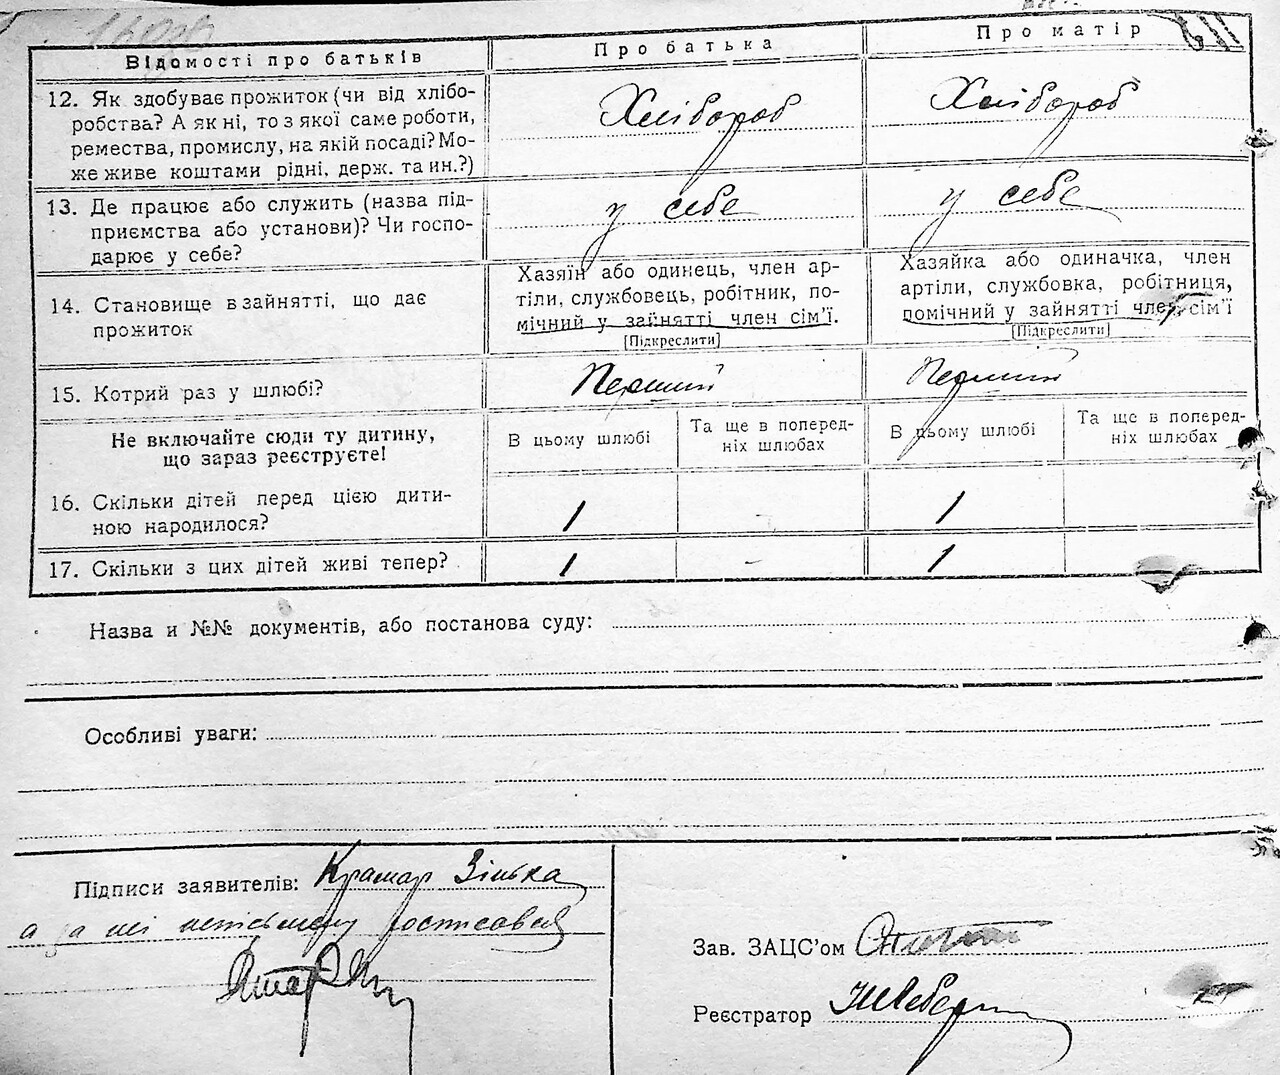 Відомості про батьків Про батька Про матір
12. Як здобуває прожиток (чи від хлібо-
робства? А як ні, то з якої саме роботи,
ремества, промислу, на якій посаді? Мо-
же живе коштами рідні, держ. та ин.?)
Хлібороб Хлібороб
13. Де працює або служить (назва під-
приємства або установи)? Чи госпо-
дарює у себе?
у себе у себе
14. Становище в зайнятті, що дає
прожиток
Хазяїн або одинець, член ар-
тіли, службовець, робітник, по-
мічний у зайнятті член сім'ї.
[Підкреслити]
Хазяйка або одиначка, член
артіли, службовка, робітниця,
помічний у зайнятті член сім'ї
[Підкреслити]
15. Котрий раз у шлюбі? Перший Перший
Не включайте сюди ту дитину,
що зараз реєструєте!
В цьому шлюбі
Та ще в поперед-
ніх шлюбах
В цьому шлюбі
Та ще в поперед-
ніх шлюбах
16. Скільки дітей перед цією дити-
ною народилося?
1 - 1
17. Скільки з цих дітей живі тепер? 1 - 1
Назва и №№ документів, або постанова суду:
Особливі уваги:
Підписи заявителів: Крамар Зінька
а за неї неписьмену росписався
Зав. ЗАЦС'ом
Реєстратор